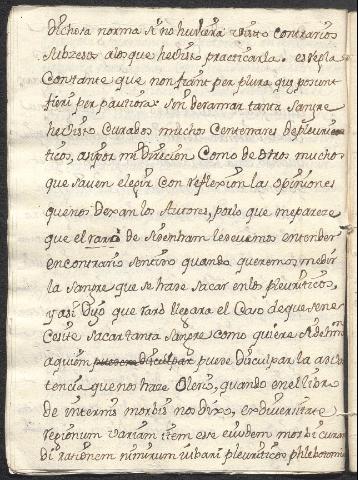 dichosa norma si no huviera visto contrarios
subzesos alos que he visto practicarla. es regla
Constante que non fiant per plura quæ possunt
fieri per pauciora. sin deramar tanta sangre
he visto Curados muchos Centenares de pleuri
ticos, asi por mi Direcion Como de otros muchos
que saven elegir Con reflexion las opiniones
que nos Dexan los Autores, por lo que me pareze
que el raro de Sidenham le devemos entender
en contrario Sentido quando queremos medir
la Sangre que se haze Sacar en los pleuriticos,
y asi Digo que raro llegara el Caso de que se ne
Cesite sacar tanta Sangre como quiere Sidenham
a quien puede disculpar la adver
tencia que nos haze Oleris, quando en el libro
de internis morbis nos dize, en diversitate
regionum variam item esse eiusdem morbi curan
di rationem nimirum in Ibari pleuriticos phlebotomia